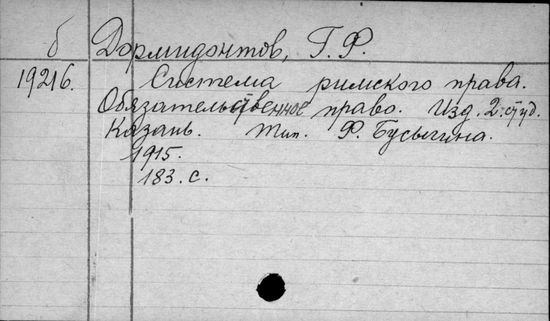 б Дормидонтов, Г.Ф.
19216. Система римского права.
Обязательственное право. Изд. 2:студ.
Казань. Тип. Ф. Бусыгина.
1915.
183. с.